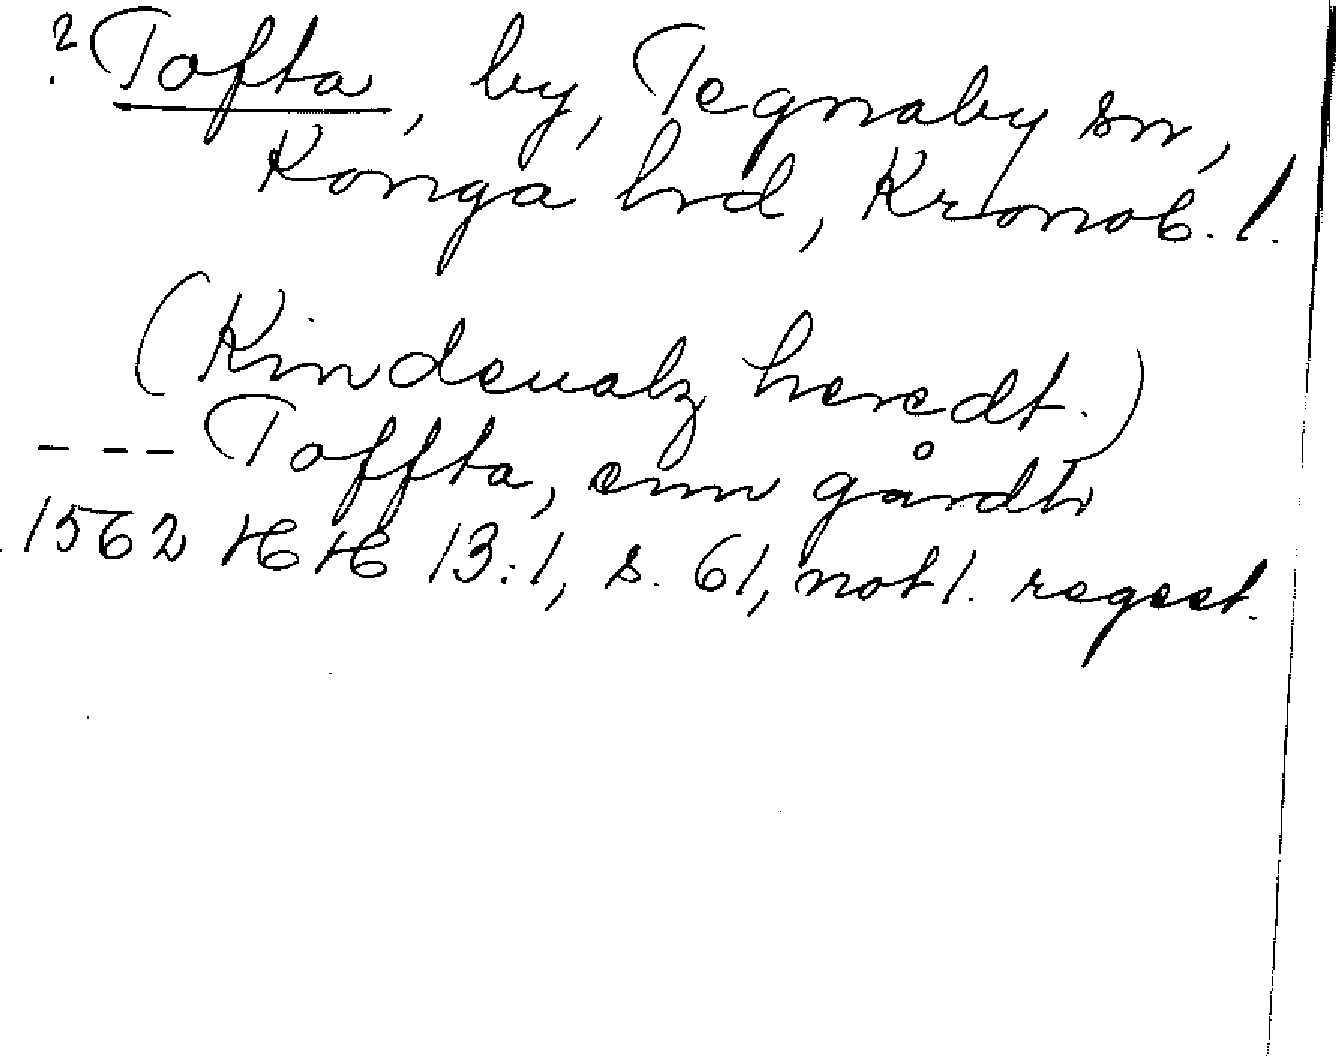 ? Tofta, by, Tegnaby sn,
Konga hrd, Kronob. l.
(Kindeualz heredt.)
--- Toffta, enn gårdh
1562 HH 13:1, s. 61, not 1. regest.